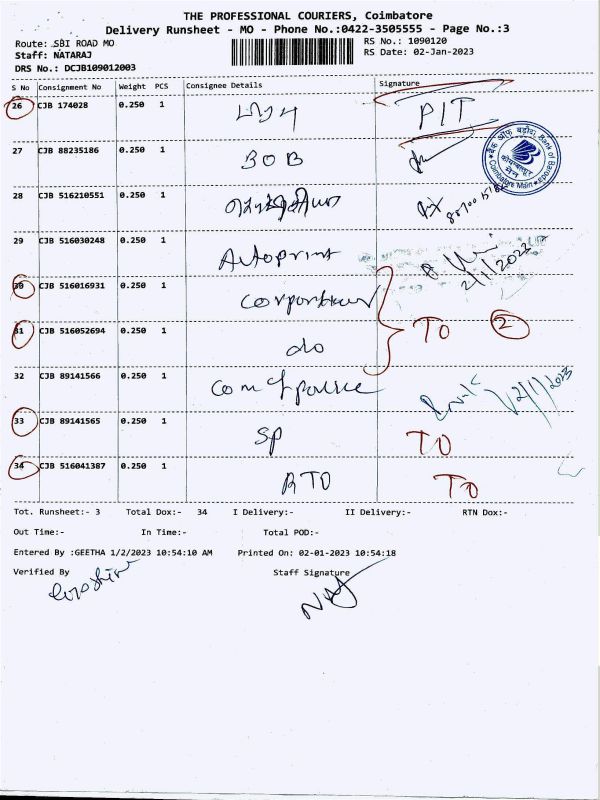 THE PROFESSIONAL COURIERS, Coimbatore
Delivery Runsheet - MO - Phone No.:0422-3505555 - Page No.:3
Route: SBI ROAD MO
RS No.: 1090120
Staff: NATARAJ
RS Date: 02-Jan-2023
DRS No.: DCJB109012003
S No Consignment No Weight PCS Consignee Details Signature
26 CJB 174028 0.250 1 PIT
27 CJB 88235186 0.250 1 BOB
बैंक ऑफ़ बड़ौदा, Bank of Baroda
Coimbatore Main
28 CJB 516210551 0.250 1
29 CJB 516030248 0.250 1 Autoprint 2/1/2023
30 CJB 516016931 0.250 1 Corporation
31 CJB 516052694 0.250 1 do TO 2
32 CJB 89141566 0.250 1 Com of police 2/1/2023
33 CJB 89141565 0.250 1 SP TO
34 CJB 516041387 0.250 1 RTO TO
Tot. Runsheet:- 3 Total Dox:- 34 I Delivery:- II Delivery:- RTN Dox:-
Out Time:- In Time:- Total POD:-
Entered By :GEETHA 1/2/2023 10:54:10 AM Printed On: 02-01-2023 10:54:18
Verified By Staff Signature